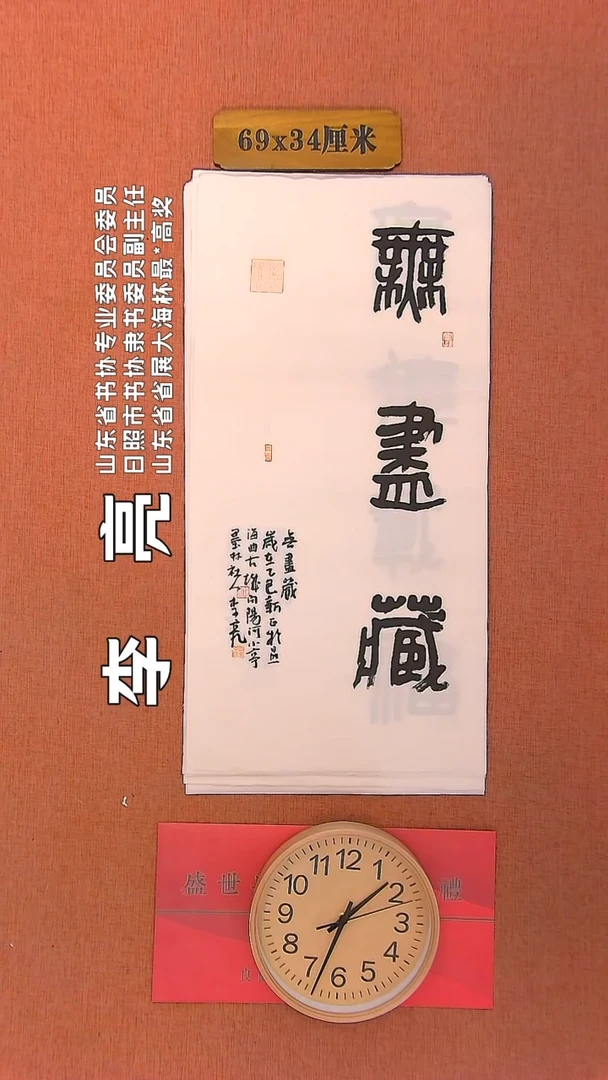 69x34厘米
李亮
山东省书协专业委员会委员
日照市书协隶书委员副主任
山东省省展大海杯最*高奖
無盡藏
無盡藏
歲在乙巳新正於
海曲古城向陽河小亭
墨林社人李亮
盛世
禮
12
1
2
3
4
5
6
7
8
9
10
11